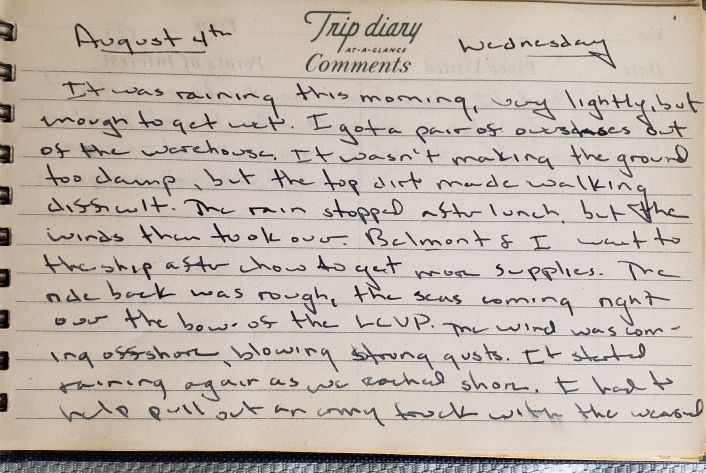 August 4th
Trip diary
AT-A-GLANCE
Comments
Wednesday
It was raining this morning, very lightly, but
enough to get wet. I got a pair of overshoes out
of the warehouse. It wasn't making the ground
too damp, but the top dirt made walking
difficult. The rain stopped after lunch, but the
winds then took over. Belmont & I went to
the ship after chow to get more supplies. The
ride back was rough, the seas coming right
over the bow of the LCVP. The wind was com-
ing offshore, blowing strong gusts. It started
raining again as we reached shore. I had to
help pull out an army truck with the weasel